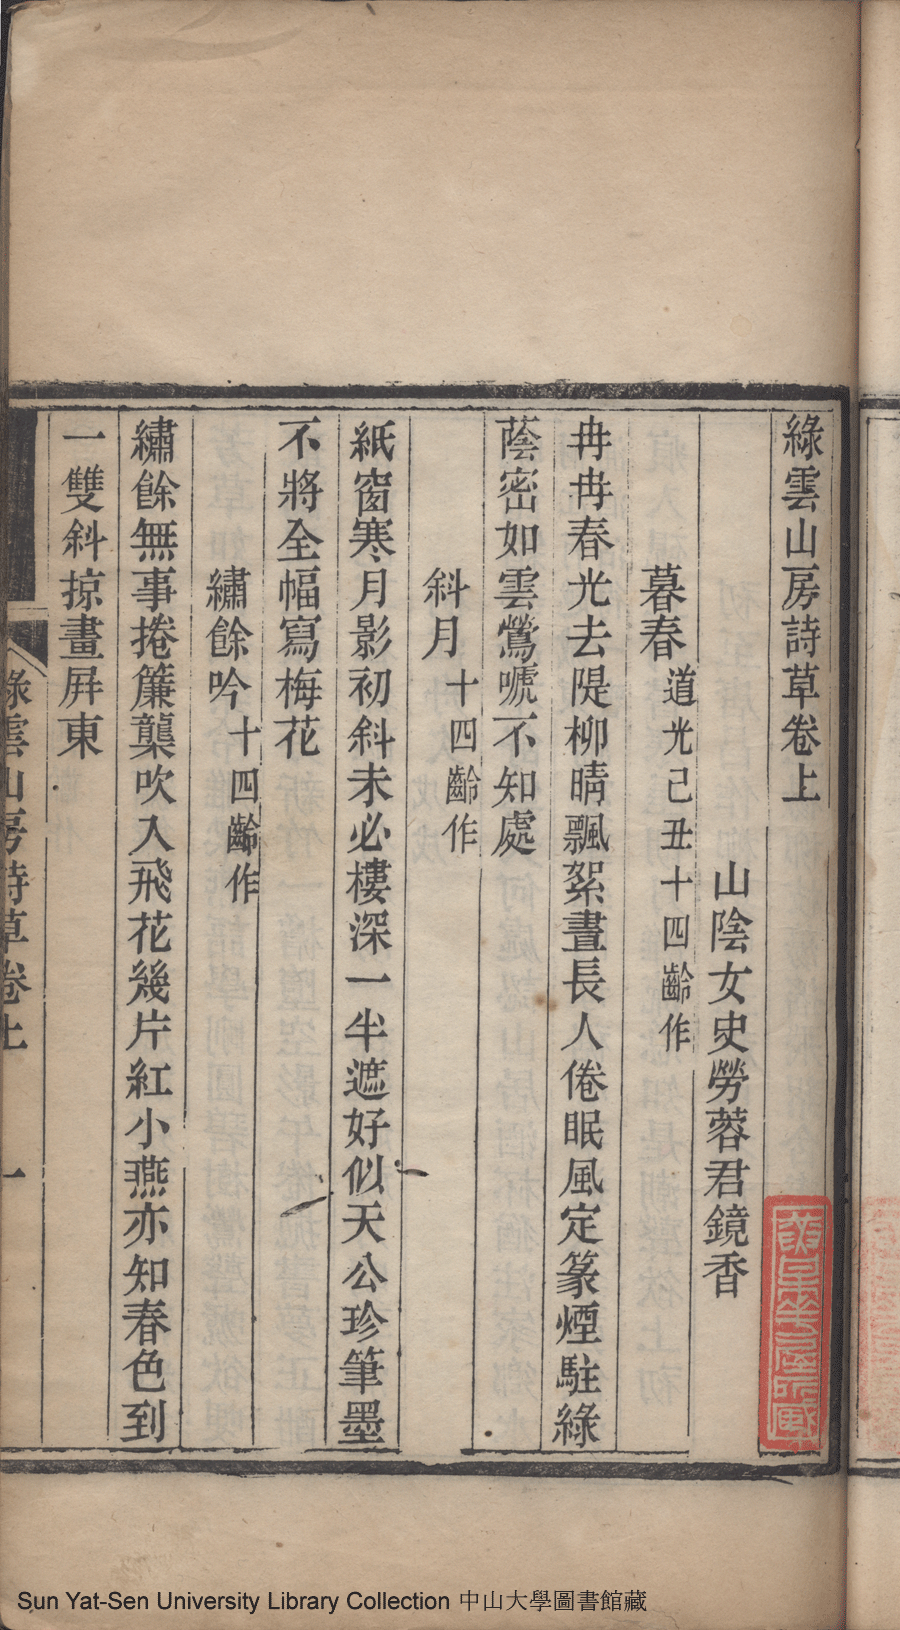 綠雲山房詩草卷上
山陰女史勞蓉君鏡香
暮春 道光己丑十四齡作
冉冉春光去隄柳晴飄絮晝長人倦眠風定篆煙駐綠
蔭密如雲鶯嗁不知處
斜月 十四齡作
紙窗寒月影初斜未必樓深一半遮好似天公珍筆墨
不將全幅寫梅花
繡餘吟 十四齡作
繡餘無事捲簾櫳吹入飛花幾片紅小燕亦知春色到
一雙斜掠畫屏東
綠雲山房詩草卷上 一
Sun Yat-Sen University Library Collection 中山大學圖書館藏